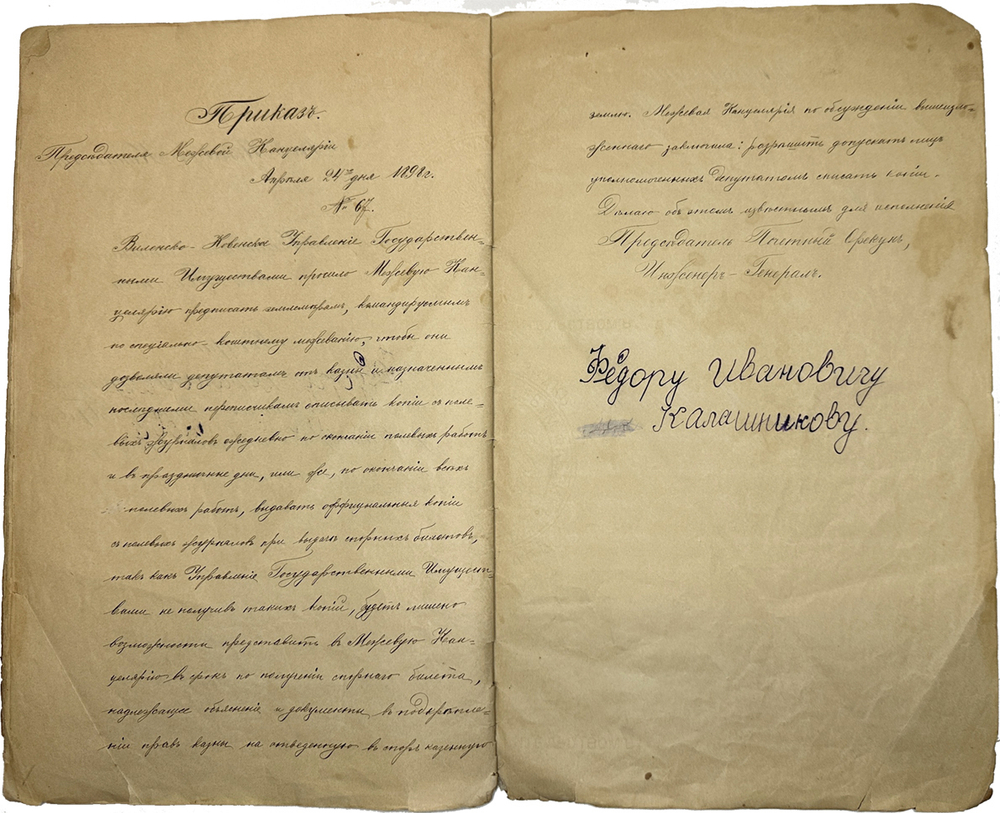 Приказъ.
Председателя Межевой Канцеляріи
Апреля 24го дня 1898 г.
№ 67.
Виленско-Ковенское Управленіе Государствен-
ными Имуществами просило Межевую Кан-
целярію предписать землемерамъ, командируемымъ
по спеціально-коштному межеванію, чтобы они
дозволяли депутатамъ отъ казны и назначеннымъ
последними переписчикамъ списывать копіи съ поле-
выхъ журналовъ ежедневно по окончаніи полевыхъ работъ
и въ праздничные дни, или же, по окончаніи всехъ
полевыхъ работъ, выдавать оффиціальныя копіи
съ полевыхъ журналовъ при выдаче спорныхъ билетовъ,
такъ какъ Управленіе Государственными Имущест-
вами не получивъ такихъ копій, будетъ лишено
возможности представить въ Межевую Кан-
целярію въ срокъ по полученіи спорнаго билета,
надлежащее объясненіе и документы въ подкрепле-
ніи правъ казны на отведенную въ споръ казенную
землю. Межевая Канцелярія по обсужденіи вышеизло-
женнаго заключила: разрешить допускать лицъ
уполномоченныхъ депутатомъ списать копіи.
Делаю объ этомъ известнымъ для исполненія
Председатель Почетный Опекунъ,
Инженеръ-Генералъ.
Фёдору Ивановичу
Калашникову.